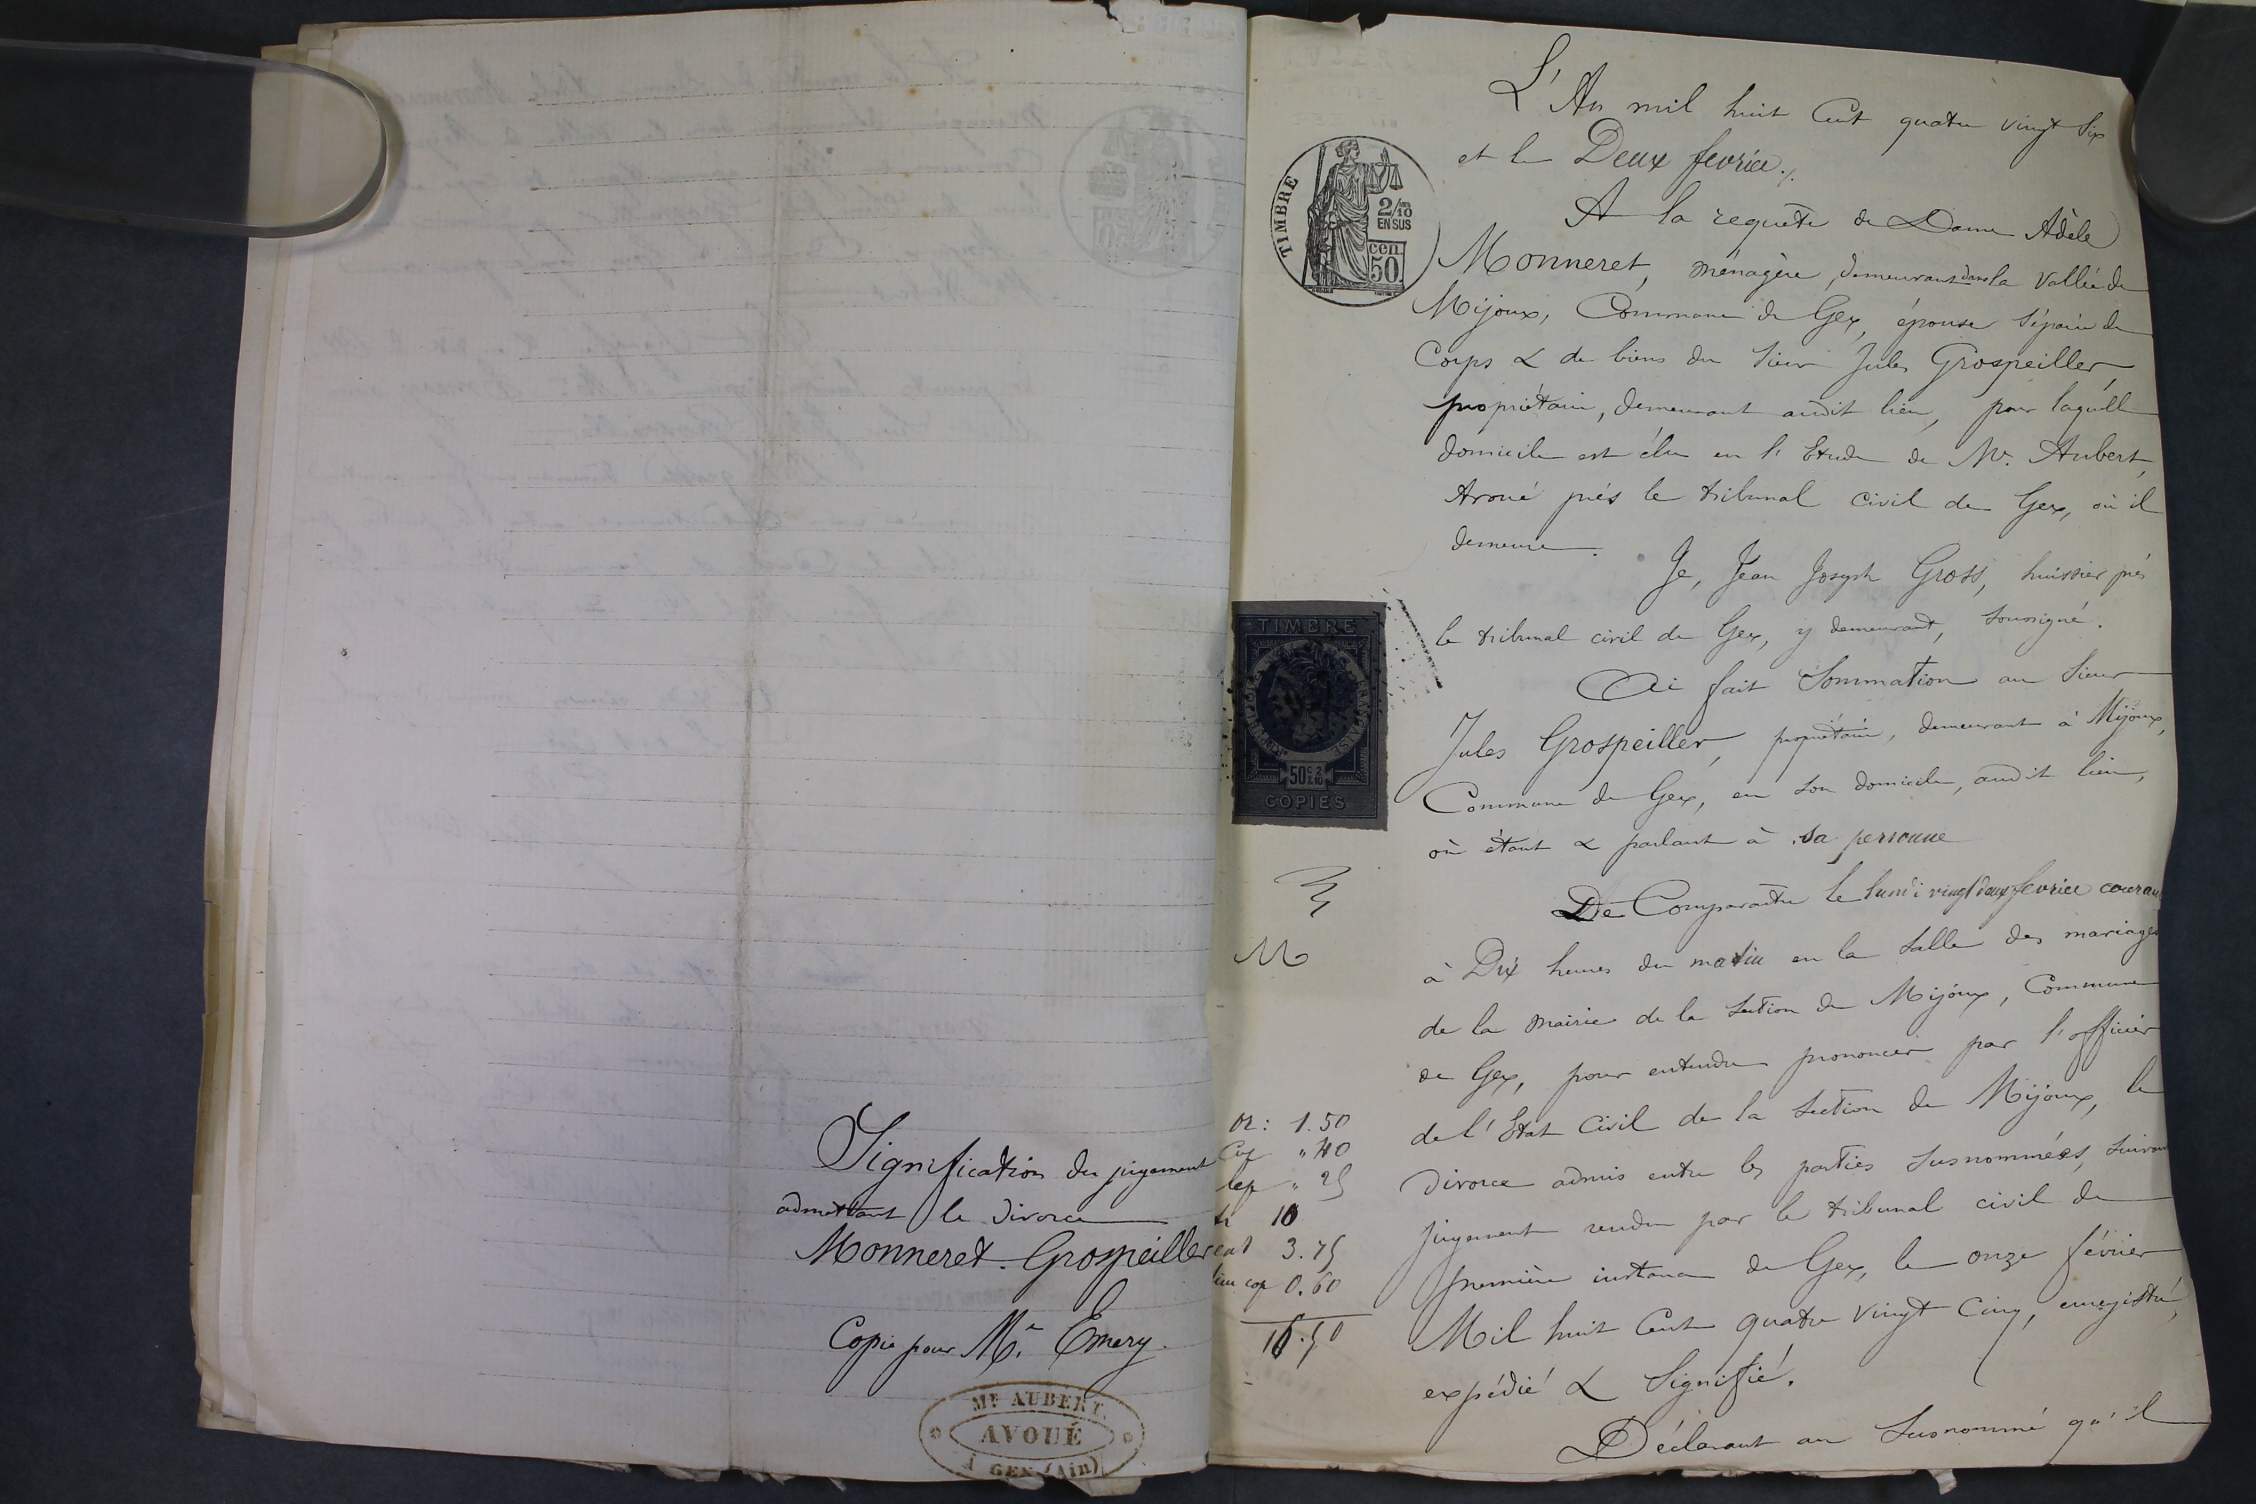 Signification du jugement
admettant le divorce
Monneret-Grospeiller
Copie pour Me Emery.
Me AUBERT.
AVOUÉ
À GEX (Ain)
TIMBRE
2/10
EN SUS
cen.
50
TIMBRE
50c 2/10
COPIES
M
or : 1.50
Cop " 40
" 25
10
3.75
cop 0.60
L'An mil huit Cent quatre vingt six
et le Deux fevrier./.
A la requête de Dame Adèle
Monneret, ménagère, demeurant dans la vallée de
Mijoux, Commune de Gex, épouse séparée de
Corps & de biens du sieur Jules Grospeiller
propriétaire, demeurant audit lieu, pour laquelle
domicile est élu en l'Etude de Me. Aubert,
Avoué près le tribunal civil de Gex, où il
demeure.
Je, Jean Joseph Gross, huissier près
le tribunal civil de Gex, y demeurant, soussigné.
Ai fait Sommation au Sieur
Jules Grospeiller, propriétaire, demeurant à Mijoux,
Commune de Gex, en son domicile, audit lieu,
où étant & parlant à sa personne
De Comparaitre le lundi vingt deux fevrier couran
à Dix heures du matin en la salle des mariages
de la mairie de la section de Mijoux, Commune
de Gex, pour entendre prononcer par l'officier
de l'Etat Civil de la section de Mijoux, le
divorce admis entre les parties susnommées, suivan
jugement rendu par le tribunal civil de
première instance de Gex, le onze février
Mil huit Cent quatre vingt cinq, enregistré,
expédié & signifié.
Déclarant au susnommé qu'il